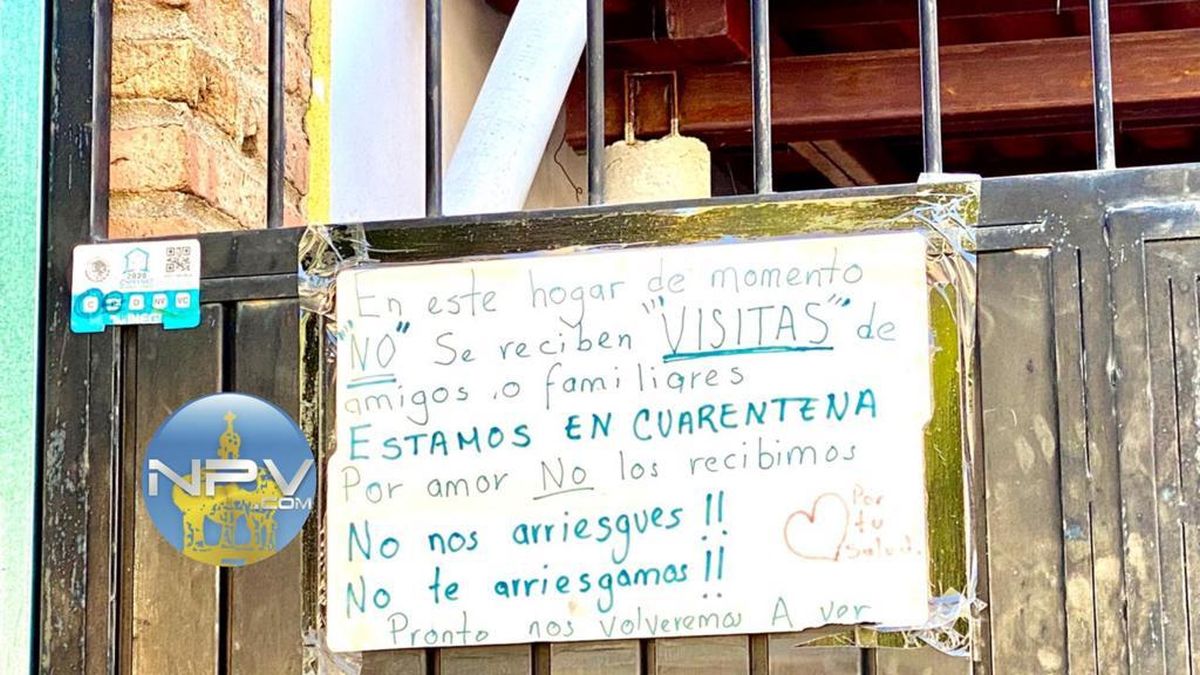 En este hogar de momento
"NO" Se reciben "VISITAS" de
amigos o familiares
ESTAMOS EN CUARENTENA
Por amor No los recibimos
No nos arriesgues !!
No te arriesgamos !!
Pronto nos volveremos A ver
Por
tu
Salud.
2020
C
D
NV
VC
NPV
.COM